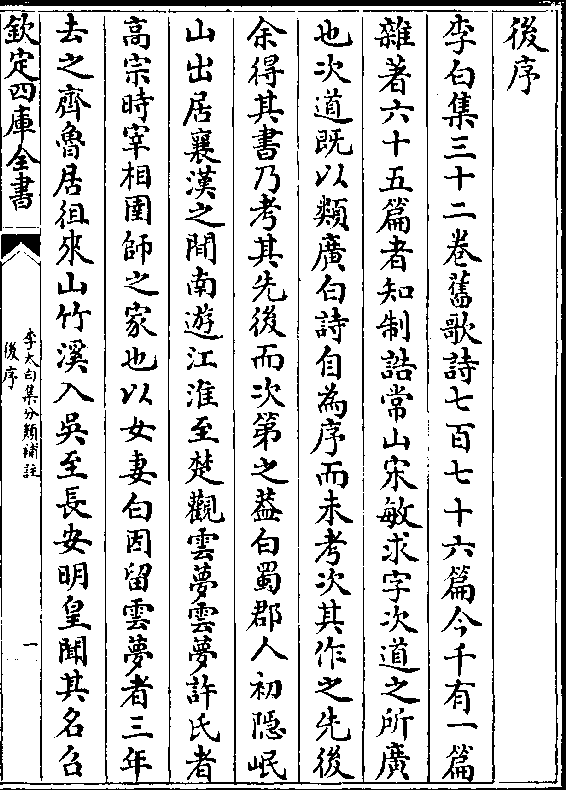 後序
李白集三十二卷舊歌詩七百七十六篇今千有一篇
雜著六十五篇者知制誥常山宋敏求字次道之所廣
也次道既以類廣白詩自為序而未考次其作之先後
余得其書乃考其先後而次第之葢白蜀郡人初隱岷
山出居襄漢之間南遊江淮至楚觀雲夢雲夢許氏者
高宗時宰相圉師之家也以女妻白因留雲夢者三年
去之齊魯居徂來山竹溪入吳至長安明皇聞其名召
欽定四庫全書
李太白集分類補註
後序
一